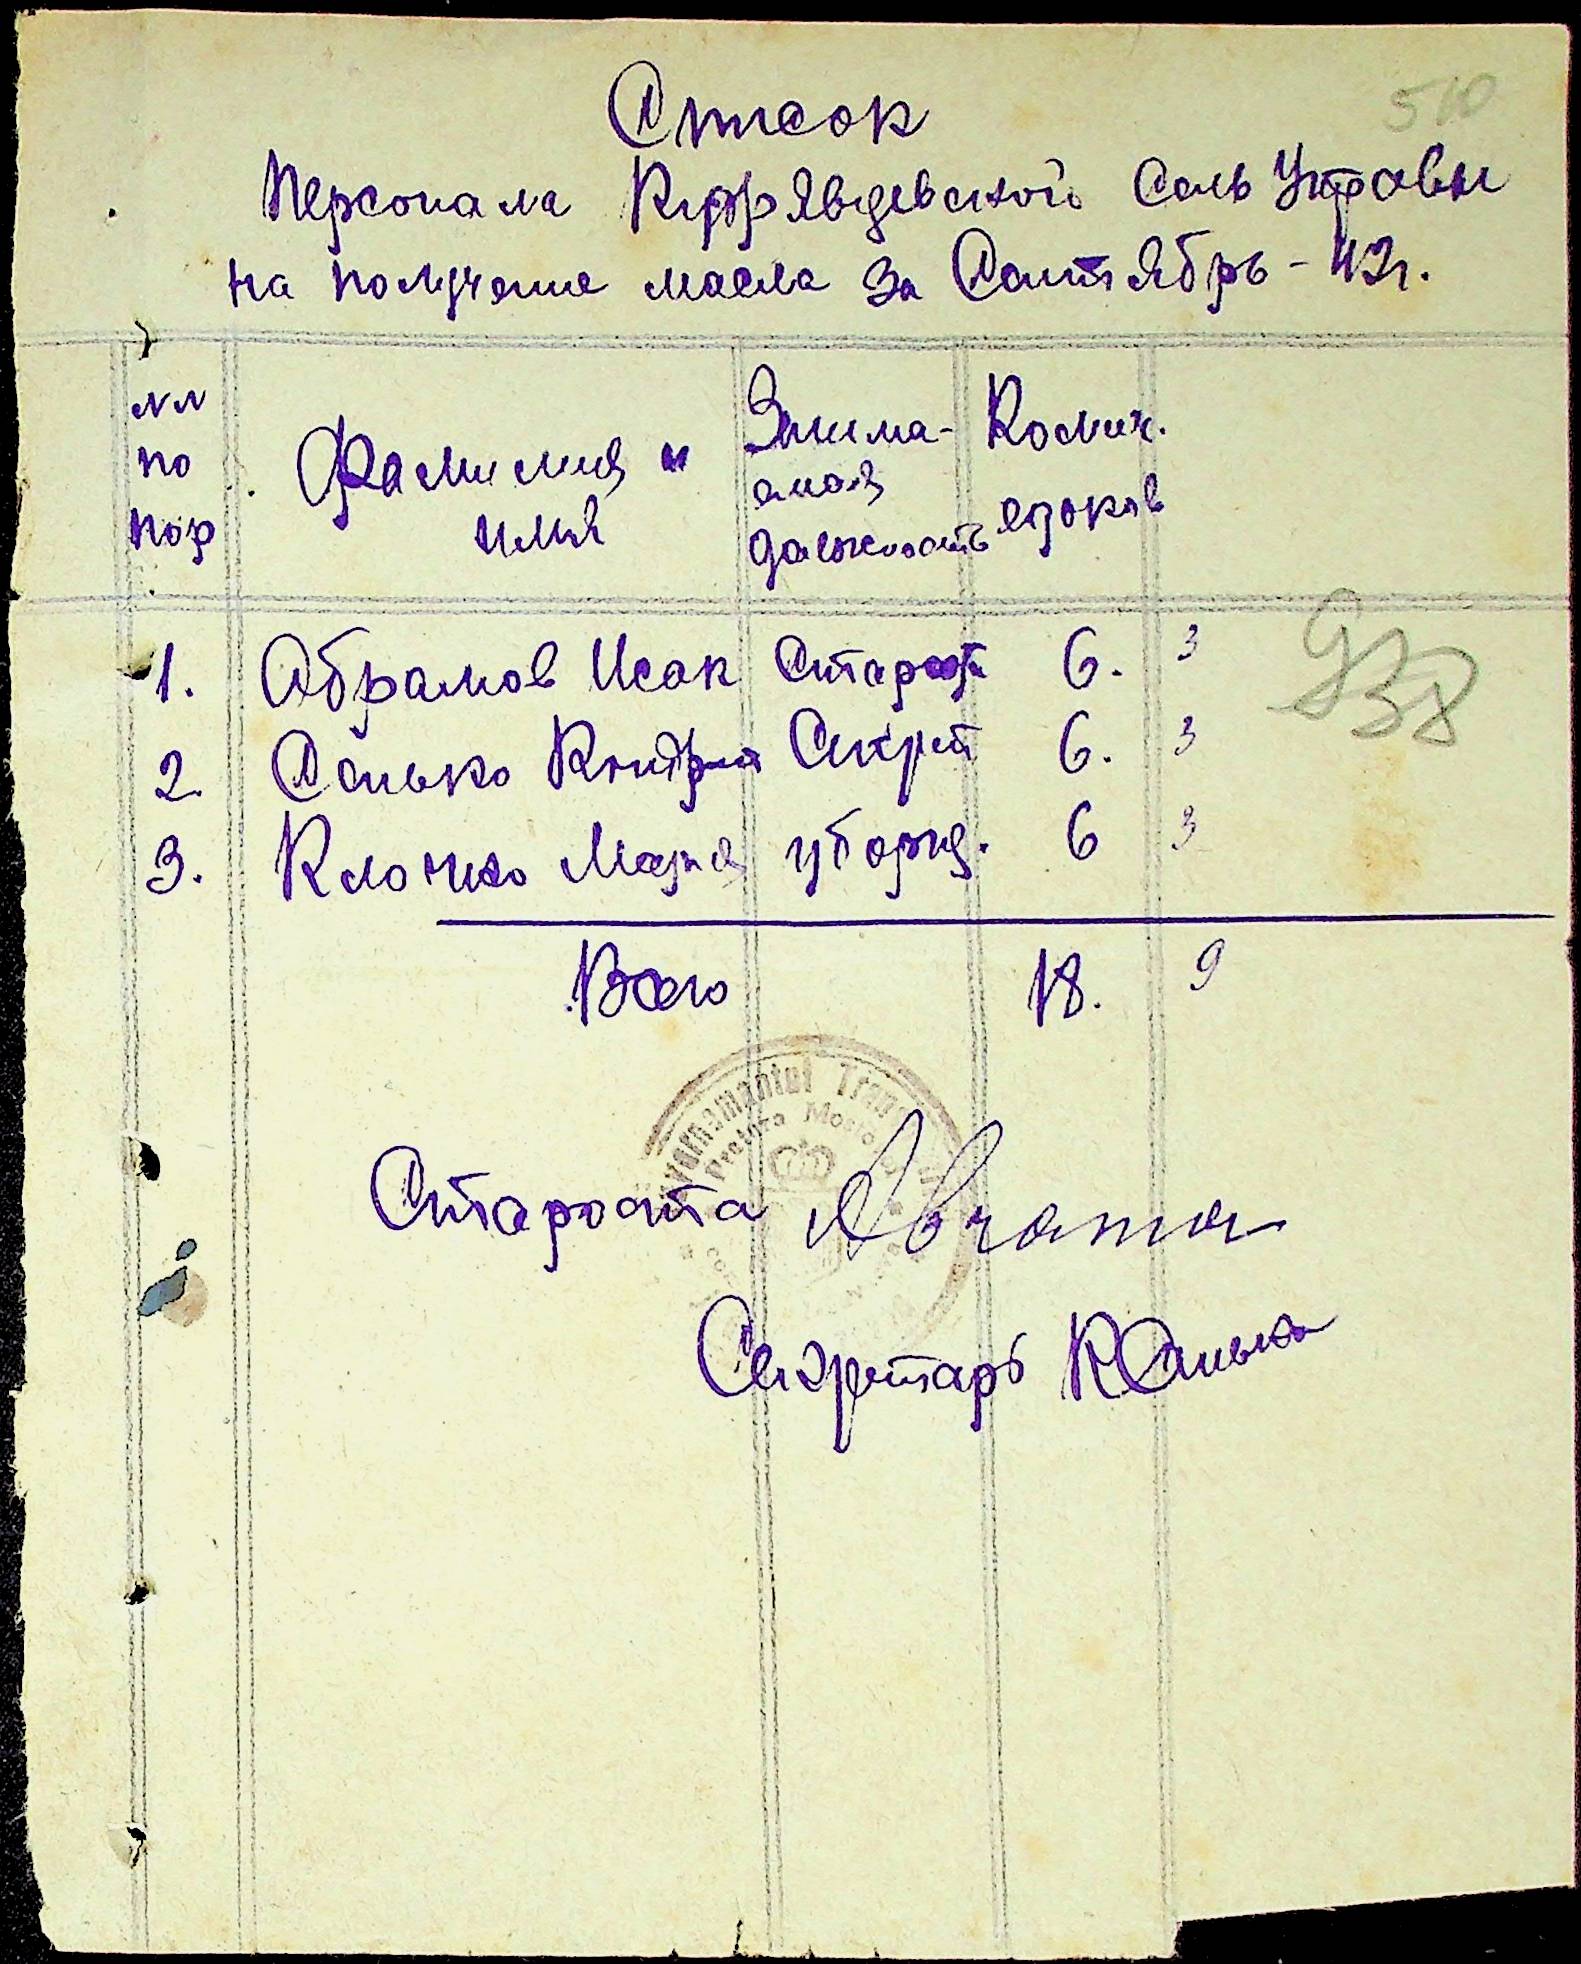 510
Список
Персонала Кудрявцевской Сель Управы
на получение масла за Сентябрь - 42 г.
№№ по пор
Фамилия и имя
Занима-
емая
должность
Колич.
едоков
1. Абрамов Исак Старост 6. 3
938
2. Сенько Кондрат Секрет 6. 3
3. Клочко Мария уборщ. 6 3
Всего 18. 9
Guvernamantul Trans
Pretura
Староста
Секретарь КСенько